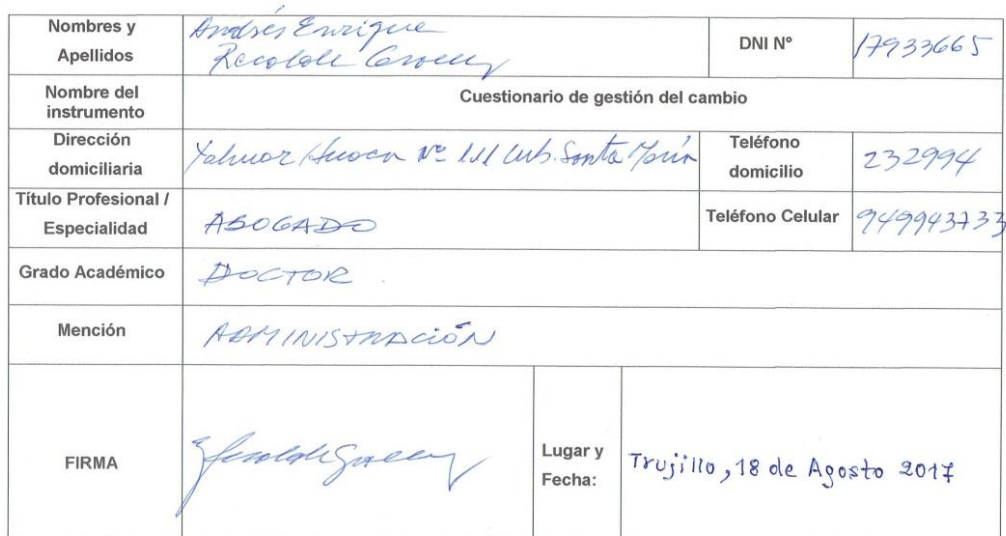 Nombres y Apellidos
Andrés Enrique
DNI Nº
17933665
Nombre del instrumento
Cuestionario de gestión del cambio
Dirección domiciliaria
Yahuar Huaca Nº 111 Urb. Santa María
Teléfono domicilio
232994
Título Profesional / Especialidad
ABOGADO
Teléfono Celular
949943733
Grado Académico
DOCTOR
Mención
ADMINISTRACIÓN
FIRMA
Lugar y Fecha:
Trujillo, 18 de Agosto 2017